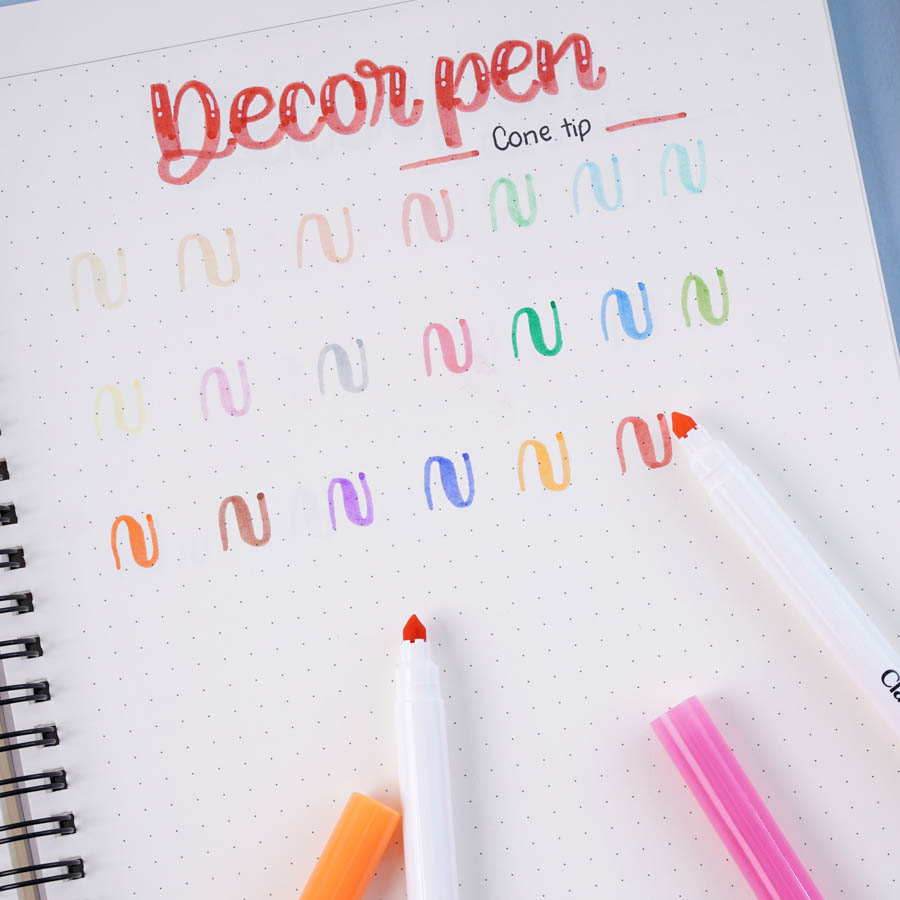 Decor pen
Cone tip
Cla